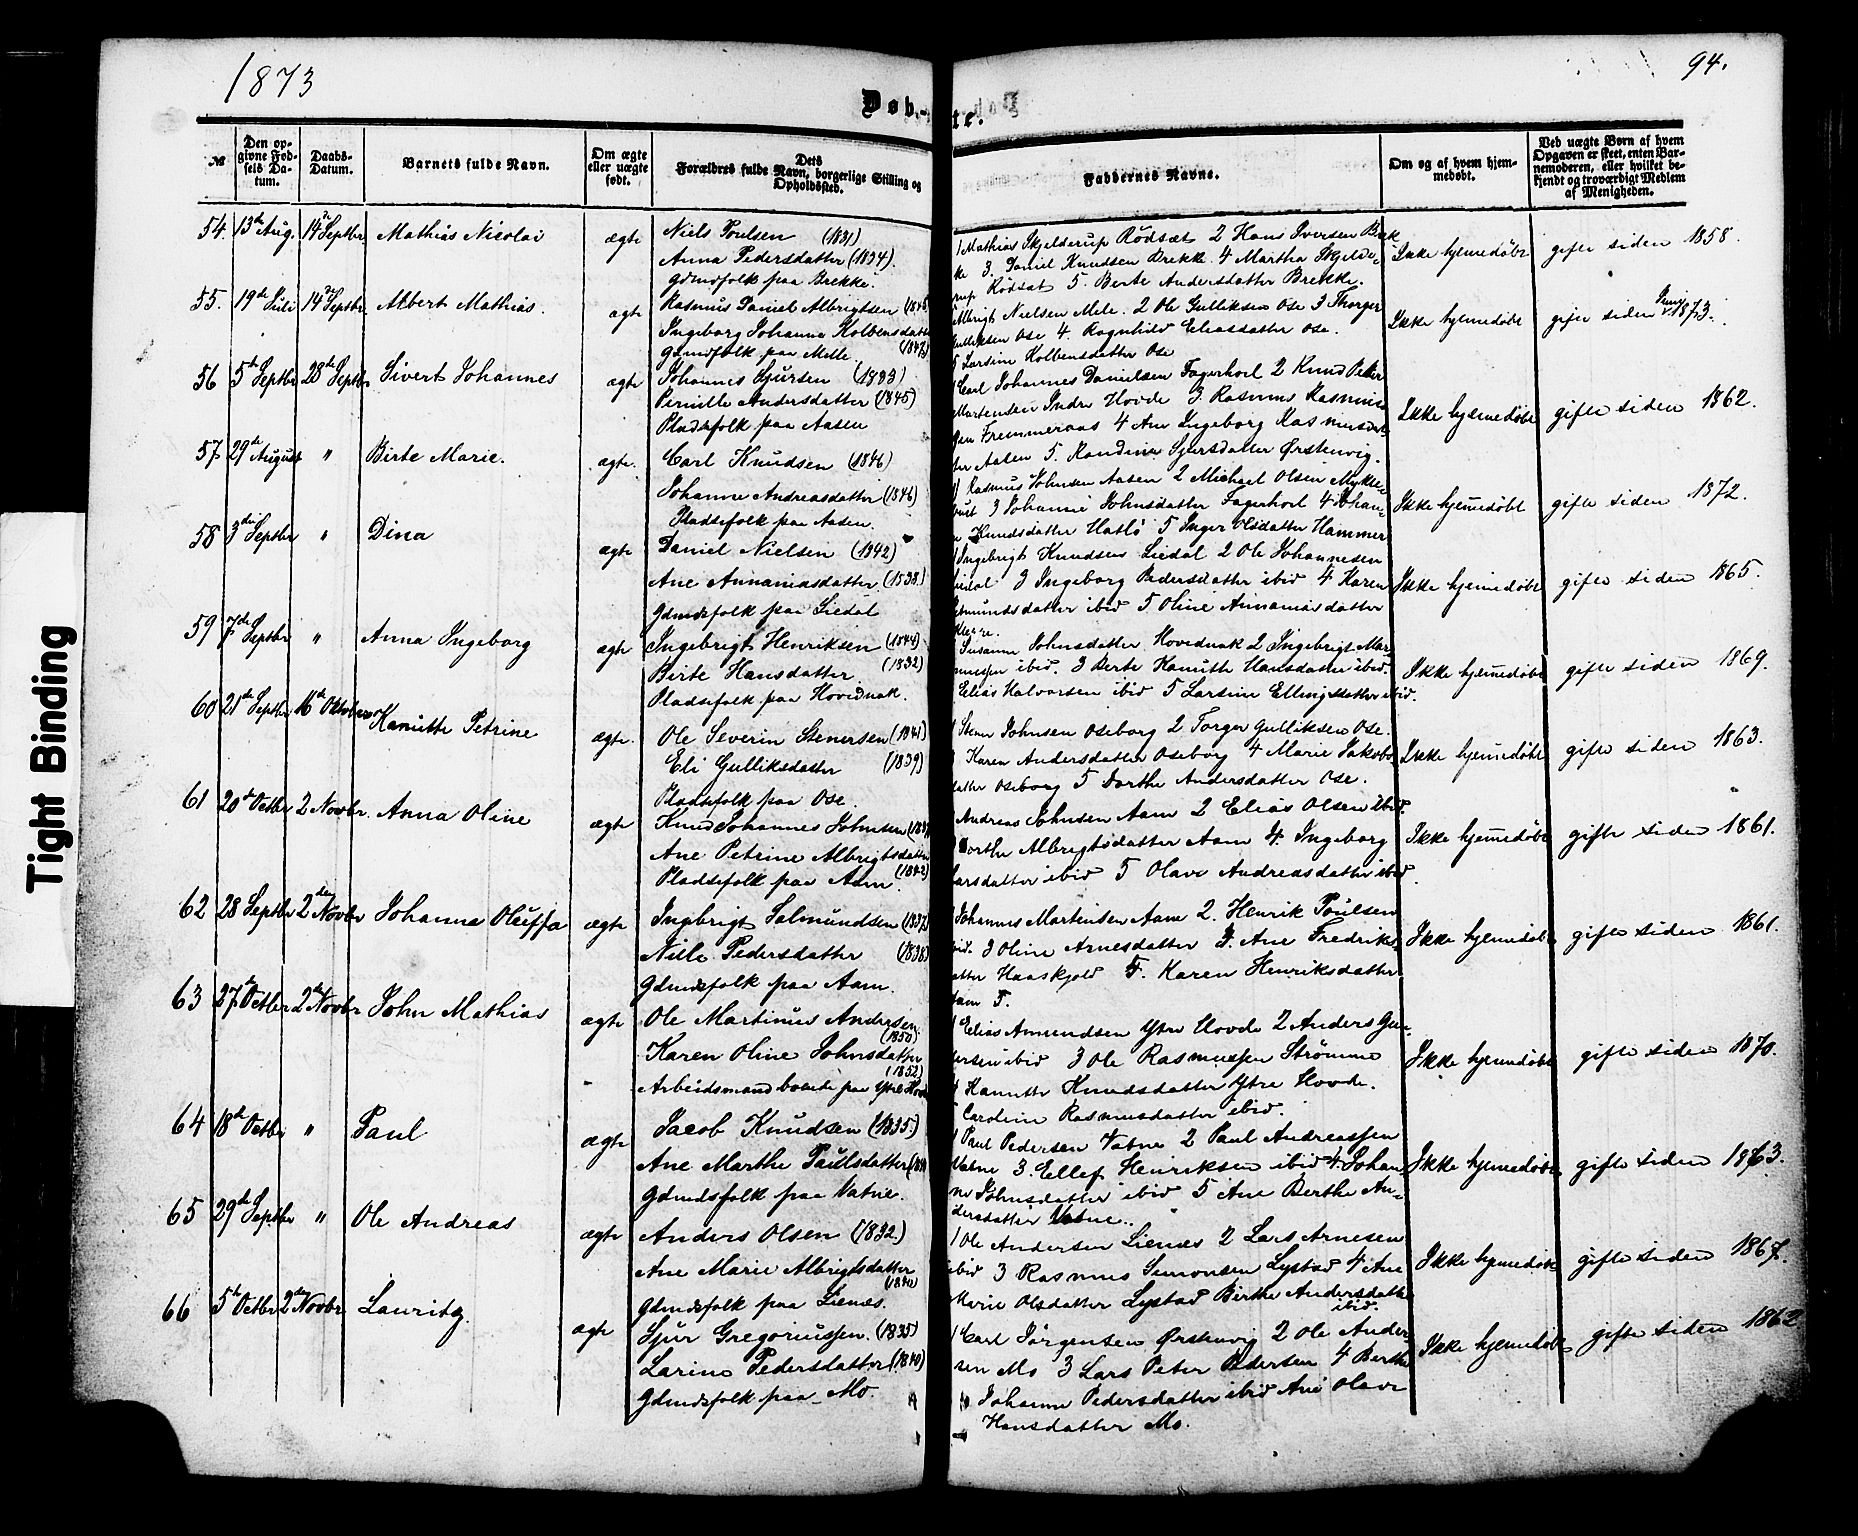 1873
94.
Døbte.
№
Den opgivne Fødsels Datum.
Daabs-Datum.
Barnets fulde Navn.
Om ægte eller uægte født.
Dets Forældres fulde Navn, borgerlige Stilling og Opholdssted.
Faddernes Navne.
Om og af hvem hjemmedøbt.
Ved uægte Børn af hvem Opgaven er skeet, enten Barnemoderen, eller hvilket bekjendt og troværdigt Medlem af Menigheden.
54. 13de Aug. 14de Septbr. Mathias Nicolai ægte
Niels Poulsen (1831)
Anna Pedersdatter (1834).
Gdmdfolk paa Brekke.
1 Mathias Skjelderup Rödsæt 2 Hans Iversen Brek
ke 3. Daniel Knudsen Brekke. 4 Martha Skjelde-
rup Rödsæt 5. Berte Andersdatter Brekke.
Ikke hjemmedøbt gifte siden 1858.
55. 19de Juli 14de Septbr Albert Mathias. ægte
Rasmus Daniel Albrigtsen
Ingeborg Johanne Kolbensdatter (1847)
Gdmdfolk paa Melle.
Albrigt Nielsen Mele. 2 Ole Gulliksen Ose 3 Thorger
Gulliksen Ose 4. Ragnhild Eliasdatter Ose.
5 Larsine Kolbensdatter Ose
Ikke hjemmedøbt gifte siden Juni 1873.
56 5te Septbr 28de Septbr Sivert Johannes ægte
Johannes Sjursen (1833)
Pernille Andersdatter (1845)
Pladsfolk paa Aasen
1 Carl Johannes Danielsen Fagerhorl 2 Knud Peter
Martensen Indre Hovde 3 Rasmus Rasmus-
sen Fremmeraas 4 Ane Ingeborg Rasmusdat-
ter Aasen 5. Randine Sjursdatter Ørstenvig.
Ikke hjemmedøbt gifte siden 1862.
57. 29de August " Birte Marie. ægte.
Carl Knudsen (1846)
Johanne Andreasdatter (1846)
Pladsefolk paa Aasen.
1 Rasmus Johnsen Aasen 2 Michael Olsen Mykle-
bust 3 Johanne Johnsdatter Fagerhorl 4 Johan-
e Knudsdatter Hatlö 5 Inger Olsdatter Hammer
Ikke hjemmedøbt gifte siden 1872.
58 3die Septbr " Dina ægte
Daniel Nielsen (1842)
Ane Annaniasdatter (1838.)
Gdmdsfolk paa Liedal
1 Ingebrigt Knudsen Liedal 2 Ole Johannesen
Liedal 3 Ingeborg Pedersdatter ibid 4 Karen
mundsdatter ibid 5 Oline Annaniasdatter
Ikke hjemmedøbt gifte siden 1865.
59 7de Septbr " Anna Ingeborg ægte
Ingebrigt Henriksen (1844)
Birte Hansdatter (1832)
Pladsefolk paa Hovidnak.
Susanne Johnsdatter Hovidnak 2 Ingebrigt Mar-
nussen ibid. 3 Berte Kanutte Hansdatter ibid.
Elias Halvorsen ibid 5 Larsine Ellingsdatter ibid.
Ikke hjemmedøbt gifte siden 1869.
60 21de Septbr 16de Oktober Kanutte Petrine ægte.
Ole Severin Stenersen (1841)
Eli Gulliksdatter (1839)
Pladsefolk paa Ose.
1 Stener Johnsen Oseborg 2 Torger Gulliksen Ose.
3 Karen Andersdatter Oseborg 4 Marie Jakobs-
datter Oseborg 5 Dorthe Andersdatter Ose.
Ikke hjemmedøbt gifte siden 1863.
61 20de Octbr 2 Novbr. Anna Oline ægte
Knud Johannes Johnsen
Ane Petrine Albrigtsdatter (1842)
Pladsefolk paa Aam.
Andreas Johnsen Aam 2 Elias Olsen ibid.
Dorthe Albrigtsdatter Aam 4. Ingeborg
Larsdatter ibid 5 Olave Andreasdatter ibid.
Ikke hjemmedøbt gifte siden 1861.
62 28 Septbr 2den Novbr Johanna Oluffa ægte
Ingebrigt Salmundsen (1837)
Nille Pedersdatter (1838)
Gdmdsfolk paa Aam.
Johannes Martinsen Aam 2. Henrik Poulsen
ibid. 3 Oline Arnesdatter 4. Ane Fredriks-
datter Haaskjold 5. Karen Henriksdatter
Aam 5.
Ikke hjemmedøbt gifte siden 1861.
63 27de Octbr 2den Novbr John Mathias ægte
Ole Martinus Andersen (1850)
Karen Oline Johnsdatter (1852)
Arbeidsmand boende paa Ytre Hovde
1 Elias Amundsen Ytre Hovde 2 Anders Gun-
dersen ibid 3 Ole Rasmussen Strömme
4 Kanutte Knudsdatter Ytre Hovde.
5 Caroline Rasmusdatter ibid.
Ikke hjemmedøbt gifte siden 1870.
64 18de Octbr " Paul ægte
Jacob Knudsen (1835.)
Ane Marthe Paulsdatter
Gdmdsfolk paa Vatne.
1 Paul Pedersen Vatne 2 Paul Andreassen
Vatne 3. Ellef Henriksen ibid 4. Johan
ne Johnsdatter ibid 5 Ane Berthe An-
dersdatter Vatne.
Ikke hjemmedøbt gifte siden 1863.
65 29de Septbr " Ole Andreas ægte
Anders Olsen (1832.)
Ane Marie Albrigtsdatter (1840)
Gdmdsfolk paa Lienæs.
1 Ole Andersen Lienæs 2 Lars Arnesen
ibid 3 Rasmus Simonsen Lystad 4 Ane
Marie Olsdatter Lystad Birthe Andersdatter
ibid.
Ikke hjemmedøbt gifte siden 1867.
66 5te Octbr 2den Novbr Lauritz. ægte
Sjur Gregoriussen. (1835)
Larine Pedersdatter (1840)
Gdmdsfolk paa Mo.
1 Carl Jörgensen Ørstenvig 2 Ole Ander-
sen Mo 3 Lars Peter Pedersen 4 Berthe
Johanne Pedersdatter ibid Ane Olave
Hansdatter Mo.
Ikke hjemmedøbt gifte siden 1862
Tight Binding